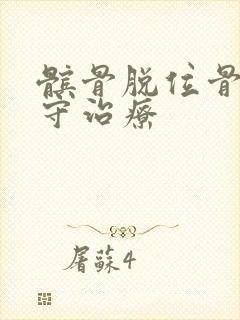 髌骨脱位骨
守治療
屠蘇4